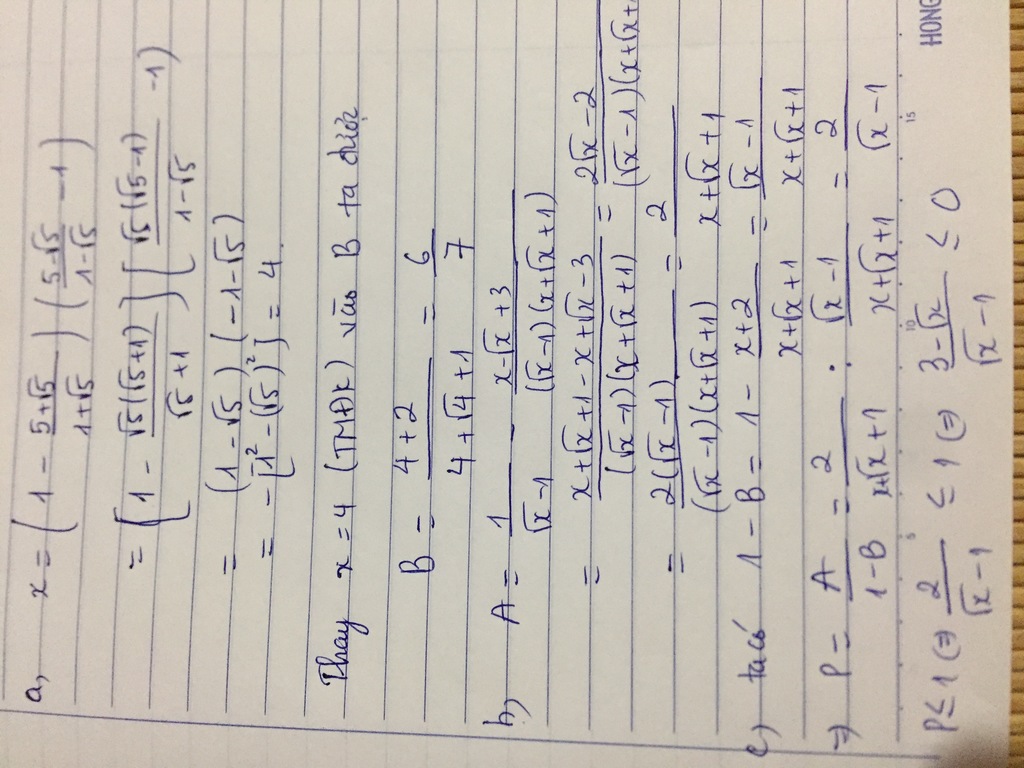 a, x = (1 - (5+√5)/(1+√5)) ((5-√5)/(1-√5) - 1)
= [1 - √5(√5+1)/(√5+1)] [√5(√5-1)/(1-√5) - 1)
= (1-√5) (-1-√5)
= -[1² - (√5)²] = 4
Thay x = 4 (TMĐK) vào B ta được
B = (4+2)/(4+√4+1) = 6/7
b, A = 1/(√x-1) - (x+√x+3)/((√x-1)(x+√x+1))
= (x+√x+1-x+√x-3)/((√x-1)(x+√x+1)) = (2√x-2)/((√x-1)(x+√x+
= 2(√x-1)/((√x-1)(x+√x+1)) = 2/(x+√x+1)
c) ta có 1 - B = 1 - (x+2)/(x+√x+1) = (√x-1)/(x+√x+1)
⇒ P = A/(1-B) = 2/(x+√x+1) : (√x-1)/(x+√x+1) = 2/(√x-1)
5 10 15
HONG
P ≤ 1 ⇔ 2/(√x-1) ≤ 1 ⇔ (3-√x)/(√x-1) ≤ 0